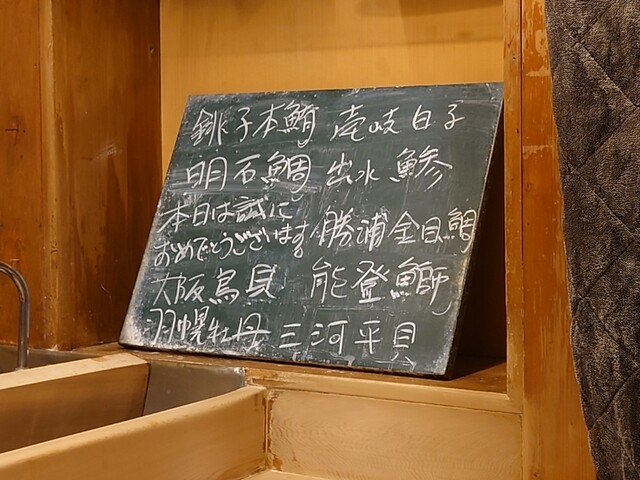 銚子本鮪 壱岐白子
明石鯛 出水鯵
本日は誠に
おめでとうございます 勝浦金目鯛
大阪鳥貝 能登鰤
羽幌牡丹 三河平貝